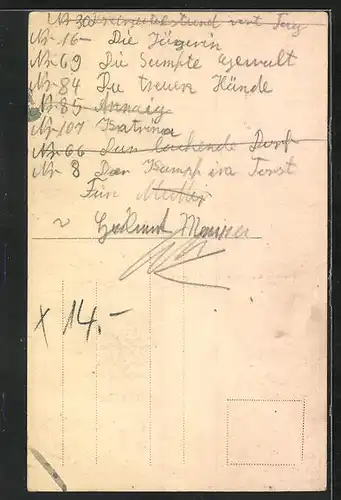 Nr 30
Nr 16 — Die Jägerin
Nr 69 Die Sumpte Gewalt
Nr 84 Die treuen Hände
Nr 85 Annaig
Nr 107 Katrina
Nr 66 Das lachende Dorf
Nr 8 Der Kampf im Forst
Für Mutter
Helmut
x 14.-